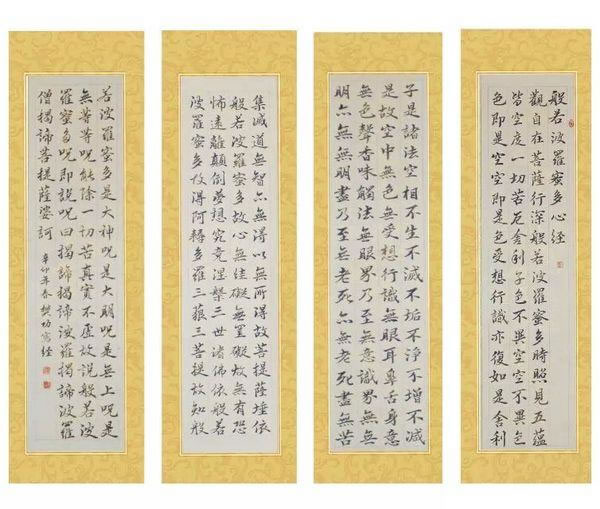 般若波羅蜜多心經
觀自在菩薩行深般若波羅蜜多時照見五蘊
皆空度一切苦厄舍利子色不異空空不異色
色即是空空即是色受想行識亦復如是舍利
子是諸法空相不生不滅不垢不淨不增不減
是故空中無色無受想行識無眼耳鼻舌身意
無色聲香味觸法無眼界乃至無意識界無無
明亦無無明盡乃至無老死亦無老死盡無苦
集滅道無智亦無得以無所得故菩提薩埵依
般若波羅蜜多故心無罣礙無罣礙故無有恐
怖遠離顛倒夢想究竟涅槃三世諸佛依般若
波羅蜜多故得阿耨多羅三藐三菩提故知般
若波羅蜜多是大神呪是大明呪是無上呪是
無等等呪能除一切苦真實不虛故說般若波
羅蜜多呪即說呪曰揭諦揭諦波羅揭諦波羅
僧揭諦菩提薩婆訶
辛卯年春樊功寫經